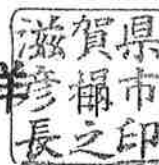 滋賀県
彦市
長之印